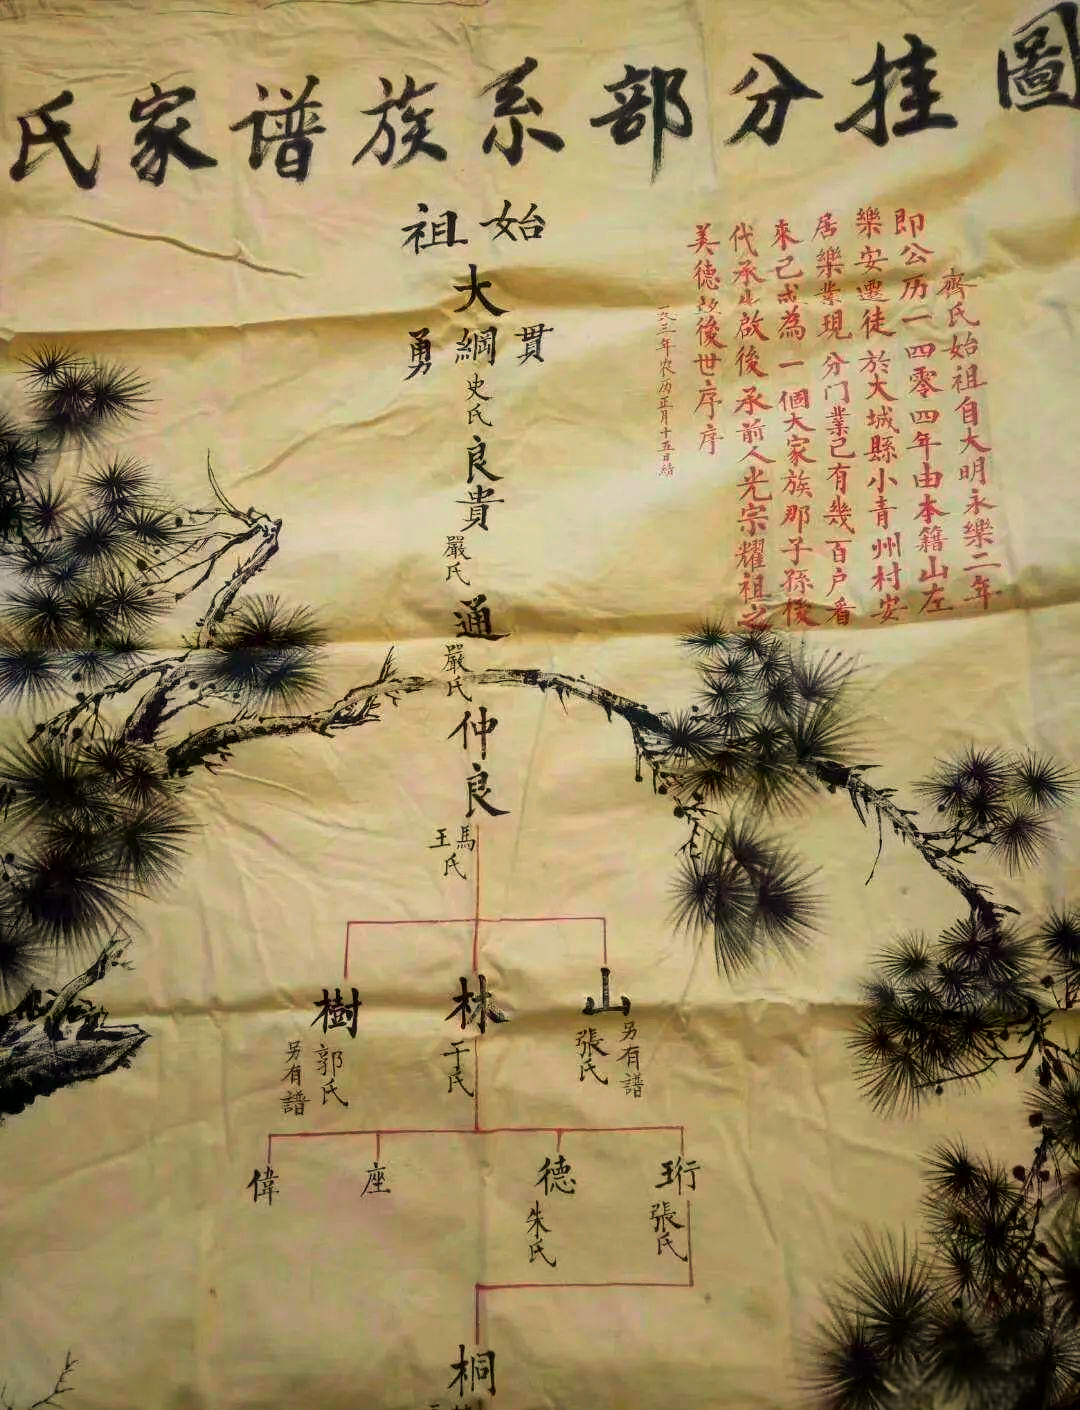 氏家谱族系部分挂圖
齊氏始祖自大明永樂二年
即公历一四零四年由本籍山左
樂安遷徒於大城縣小青州村安
居樂業現分门業已有幾百户看
來已成為一個大家族那子孫後
代承 啟後承前人光宗耀祖之
美德 後世序序
年农历正月十五日
始祖
大
貫 綱 勇
史氏
良貴
嚴氏
通
嚴氏
仲良
馬王氏
山 林 樹
張氏 另有譜
于氏
郭氏 另有譜
珩 德 座 偉
張氏
朱氏
桐